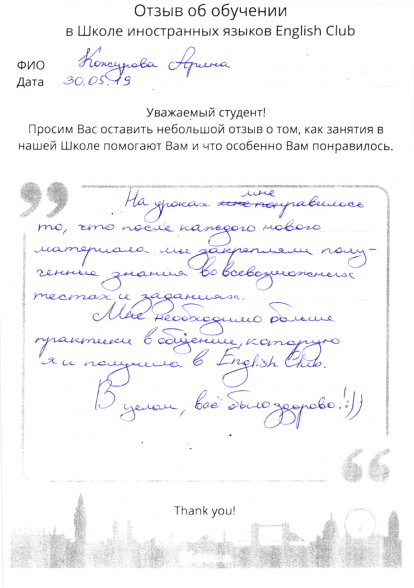 Отзыв об обучении
в Школе иностранных языков English Club
ФИО Кожурова Арина
Дата 30.05.19
Уважаемый студент!
Просим Вас оставить небольшой отзыв о том, как занятия в
нашей Школе помогают Вам и что особенно Вам понравилось.
На уроках мне понравилось
то, что после каждого нового
материала мы закрепляли полу-
ченные знания во всевозможных
тестах и заданиях.
Мне необходимо больше
практики в общении, которую
я и получила в English Club.
В целом, всё было здорово!:))
Thank you!